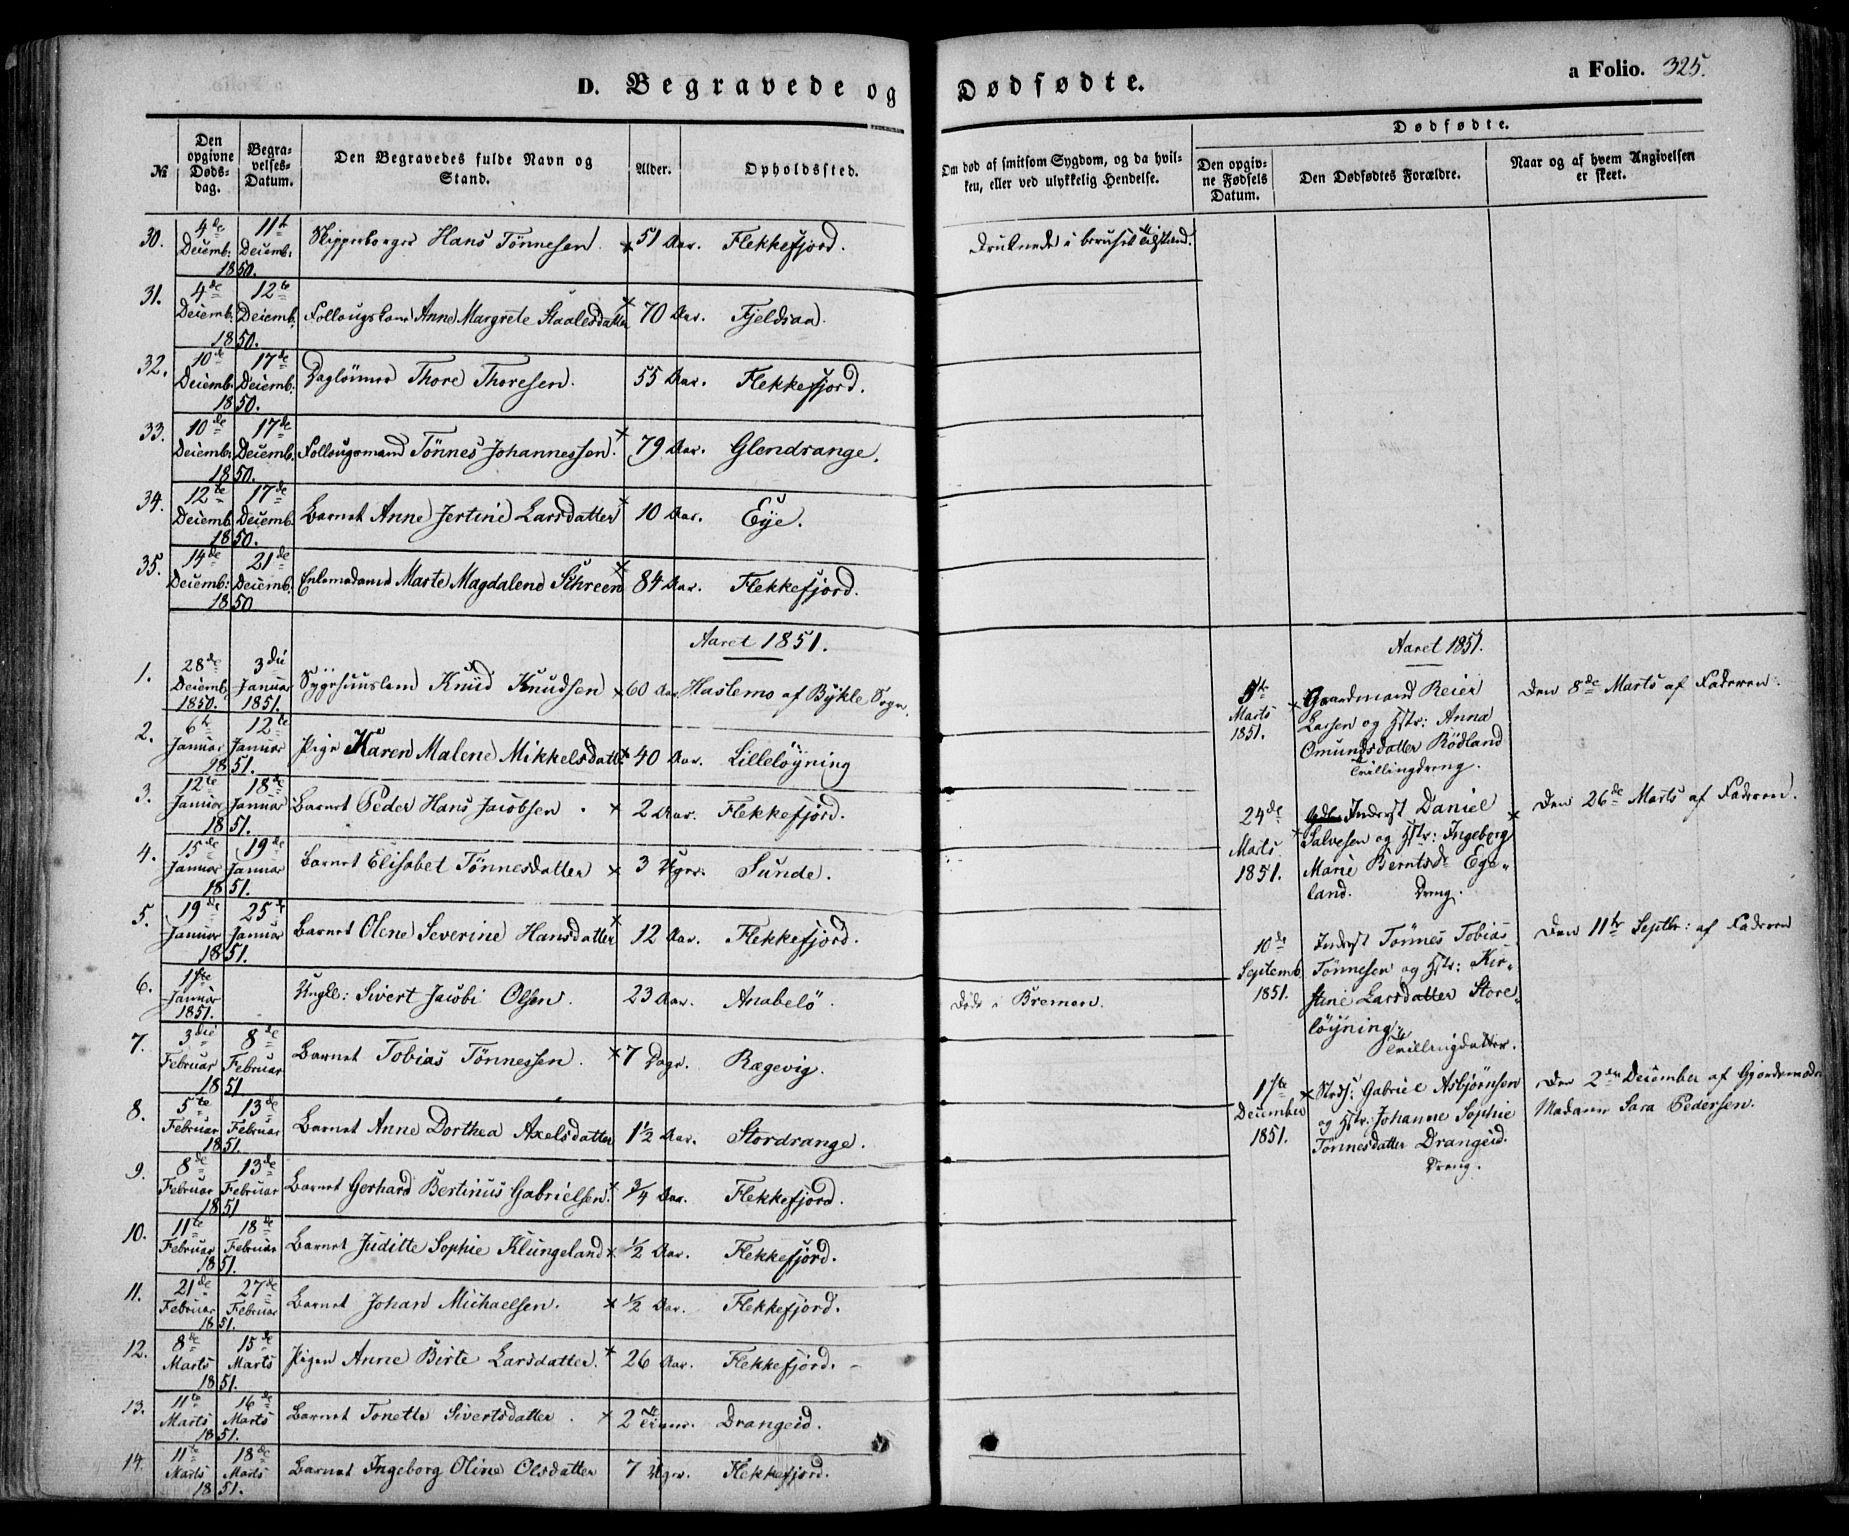 D. Begravede og Dødfødte. a Folio. 325.
№ Den opgivne Døds-dag. Begra-velses-Datum. Den Begravedes fulde Navn og Stand. Alder. Opholdssted. Om død af smitsom Sygdom, og da hvil-ken, eller ved ulykkelig Hendelse.
Dødfødte.
Den opgiv-ne Fødsels Datum. Den Dødfødtes Forældre. Naar og af hvem Angivelsen er skeet.
30. 4de Decemb: 11te Decemb: 1850. Skipperborger Hans Tönnesen. × 51 Aar. Flekkefjord. Druknede i beruset Tilstand.
31. 4de Decemb. 12te Decemb. 1850. Follougskone Anne Margrete Staalesdatter × 70 Aar. Fjeldsaa.
32. 10de Decemb. 17de Decemb. 1850. Daglönner Thore Thoresen. 55 Aar. Flekkefjord.
33. 10de Decemb: 17de Decemb. 1850. Follougsmand Tönnes Johannessen. × 79 Aar. Glendrange.
34. 12te Decemb. 17de Decemb. 1850. Barnet Anne Jertine Larsdatter × 10 Aar. Eye.
35. 14de Decemb: 21de Decemb. 1850 Enkemadame Marte Magdalene Schreen × 84 Aar. Flekkefjord.
Aaret 1851.
1. 28de Decemb. 1850. 3die Januar 1851. Sygehuuslem Knud Knudsen × 60 Aar Hastemo af Bykle Sogn.
2. 6te Januar 12te Januar 1851. Pige Karen Malene Mikkelsdatter × 40 Aar. Lillelöyning
3. 12te Januar 18de Januar 1851. Barnet Peder Hans Jacobsen. × 2 Aar. Flekkefjord.
4. 15de Januar 19de Januar 1851. Barnet Elisabet Tönnesdatter × 3 Uger. Sunde.
5. 19de Januar 25de Januar 1851. Barnet Olene Severine Hansdatter × 12 Aar. Flekkefjord.
6. 1ste Januar 1851. Ungk: Sivert Jacobi Olsen. 23 Aar. Anabelö. Döde i Bremen.
7. 3die Februar 8de Februar 1851 Barnet Tobias Tönnessen. × 7 Dage. Rægevig.
8. 5te Februar 13de Februar 1851. Barnet Anne Dorthea Axelsdatter 1½ Aar. Stordrange.
9. 8de Februar 13de Februar 1851 Barnet Gerhard Bertinius Gabrielsen. × ¾ Aar. Flekkefjord.
10. 11te Februar 18de Februar 1851. Barnet Juditte Sophie Klungeland × ½ Aar. Flekkefjord.
11. 21de Februar 27de Februar 1851. Barnet Johan Michaelsen. × ½ Aar. Flekkefjord.
12. 8de Marts 15de Marts 1851. Pigen Anne Birte Larsdatter. × 26 Aar. Flekkefjord.
13. 11te Marts 16de Marts 1851. Barnet Tonette Sivertsdatter. × 2 Timer. Drangeid.
14. 11te Marts 18de Marts 1851. Barnet Ingeborg Oline Olsdatter 7 Uger. Flekkefjord.
Aaret 1851.
5te Marts 1851. × Gaardmand Reier Larsen og Hstr: Anna Omundsdatter Rödland Tvillingdreng. Den 8de Marts af Faderen.
24de Marts 1851. × Inderst Daniel Salvesen og Hstr: Ingeborg Marie Berntsd. Ege-land. Dreng. × Den 26de Marts af Faderen.
10de Septemb 1851. Inderst Tönnes Tobias Tönnesen og Hstr: Kir-stine Larsdatter Store-löyning. Tvillingdatter. Den 11te Septbr: af Faderen
1ste December 1851. × Strds: Gabriel Asbjörnsen og Hstr: Johanne Sophie Tönnesdatter Drangeid. Dreng. Den 2den December af Gjordemoder Madame Sara Pedersen.